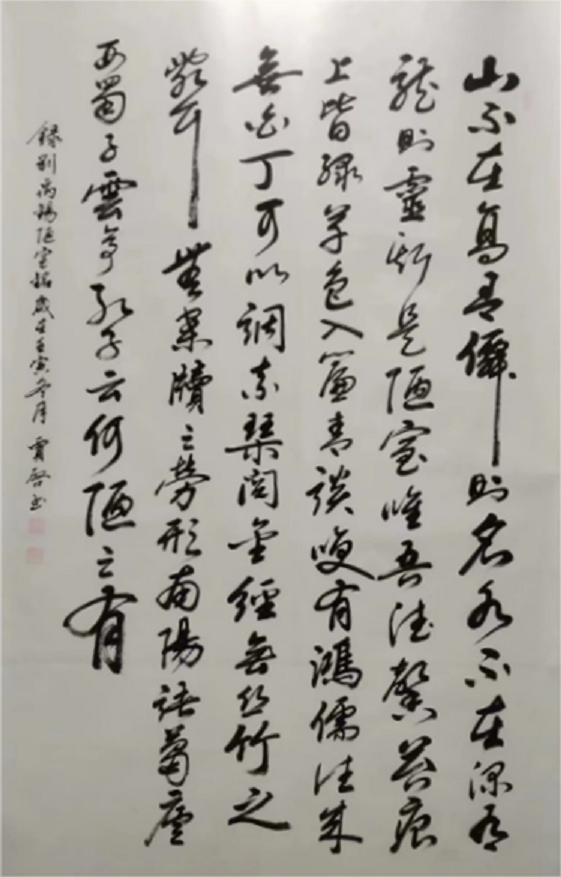 山不在高有僊則名水不在深有
龍則靈斯是陋室唯吾德馨苔痕
上皆綠草色入簾青談咲有鴻儒往来
無白丁可以調素琴閱金經無丝竹之
亂耳無案牘之勞形南陽諸葛廬
西蜀子雲亭孔子云何陋之有
錄刘禹錫陋室銘歲在壬寅冬月 賈啓书